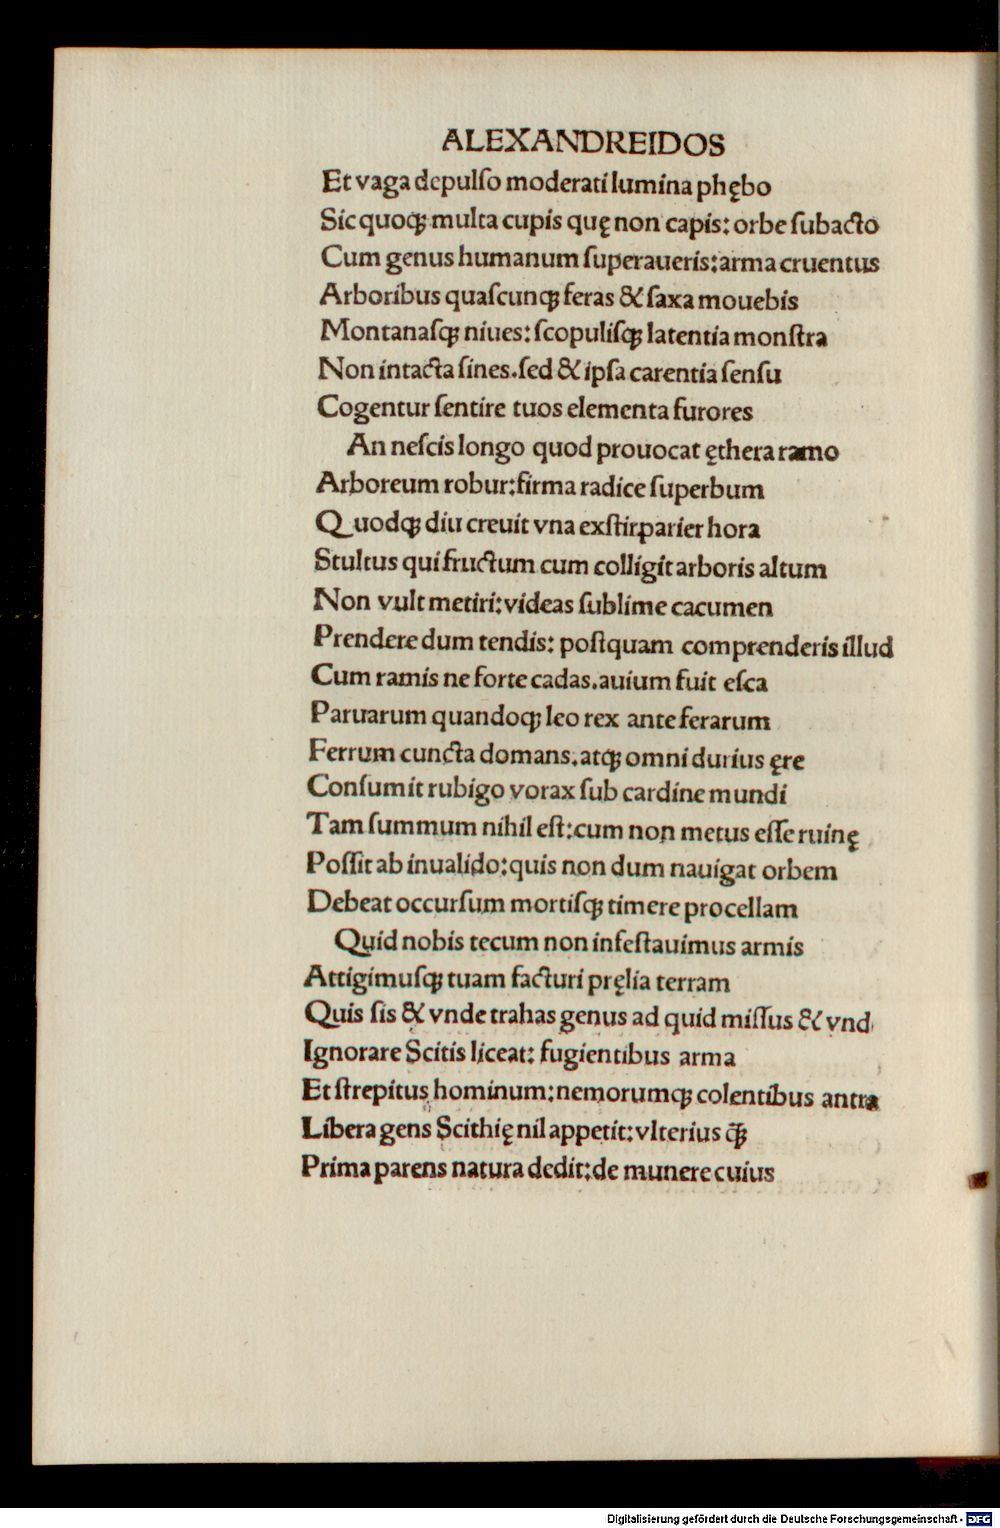 ALEXANDREIDOS
Et vaga depulſo moderati lumina phębo
Sic quoqꝫ multa cupis quę non capis: orbe ſubacto
Cum genus humanum ſuperaueris: arma cruentus
Arboribus quaſcunqꝫ feras & ſaxa mouebis
Montanaſqꝫ niues: ſcopuliſqꝫ latentia monſtra
Non intacta ſines. ſed & ipſa carentia ſenſu
Cogentur ſentire tuos elementa furores
An neſcis longo quod prouocat ęthera ramo
Arboreum robur: firma radice ſuperbum
Quodqꝫ diu creuit vna exſtirparier hora
Stultus qui fructum cum colligit arboris altum
Non vult metiri: videas ſublime cacumen
Prendere dum tendis: poſtquam comprenderis illud
Cum ramis ne forte cadas. auium fuit eſca
Paruarum quandoqꝫ leo rex ante ferarum
Ferrum cuncta domans. atqꝫ omni durius ęre
Conſumit rubigo vorax ſub cardine mundi
Tam ſummum nihil eſt: cum non metus eſſe ruinę
Poſſit ab inualido: quis non dum nauigat orbem
Debeat occurſum mortiſqꝫ timere procellam
Quid nobis tecum non infeſtauimus armis
Attigimuſqꝫ tuam facturi pręlia terram
Quis ſis & vnde trahas genus ad quid miſſus & vnd
Ignorare Scitis liceat: fugientibus arma
Et ſtrepitus hominum: nemorumqꝫ colentibus antra
Libera gens Scithię nil appetit: vlterius q̄ꝫ
Prima parens natura dedit: de munere cuius
Digitalisierung gefördert durch die Deutsche Forschungsgemeinschaft - DFG